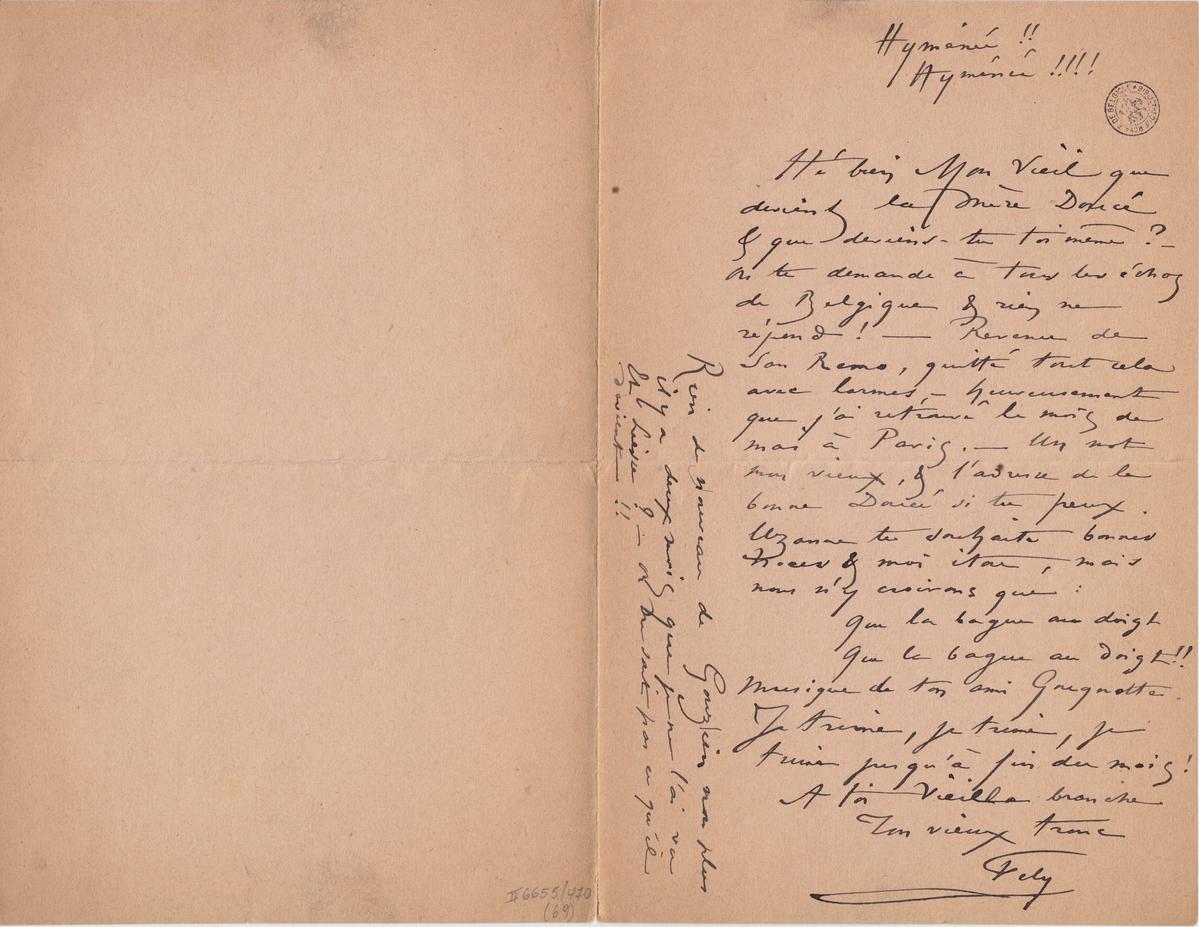 Hyménée !!
Hyménée !!!!
BIBLIOTHEQUE ROYALE DE BELGIQUE
Hé bien Mon Vieil que
devient la Mère Doucé
& que deviens-tu toi même ? –
On te demande à tous les échos
de Belgique & rien ne
répond ! — Revenue de
San Remo, quitté tout cela
avec larmes, – heureusement
que j'ai retrouvé le mois de
mai à Paris. — Un mot
mon vieux, & l'adresse de la
bonne Doucé si tu peux.
Uzanne te souhaite bonnes
Noces & moi itou, mais
nous n'y croirons que :
Que la bague au doigt
Que la bague au doigt !!
Musique de ton ami
Je trime, je trime, je
trime jusqu'à fin du mois !
A toi Vieille branche
Ton vieux tronc
Fély
Rien de nouveau de Gouzien non plus
il y a deux mois que je ne l'ai vu
Et Liesse ? – on ne sait pas ce qu'il
devient !!
II 6655/470
(69)